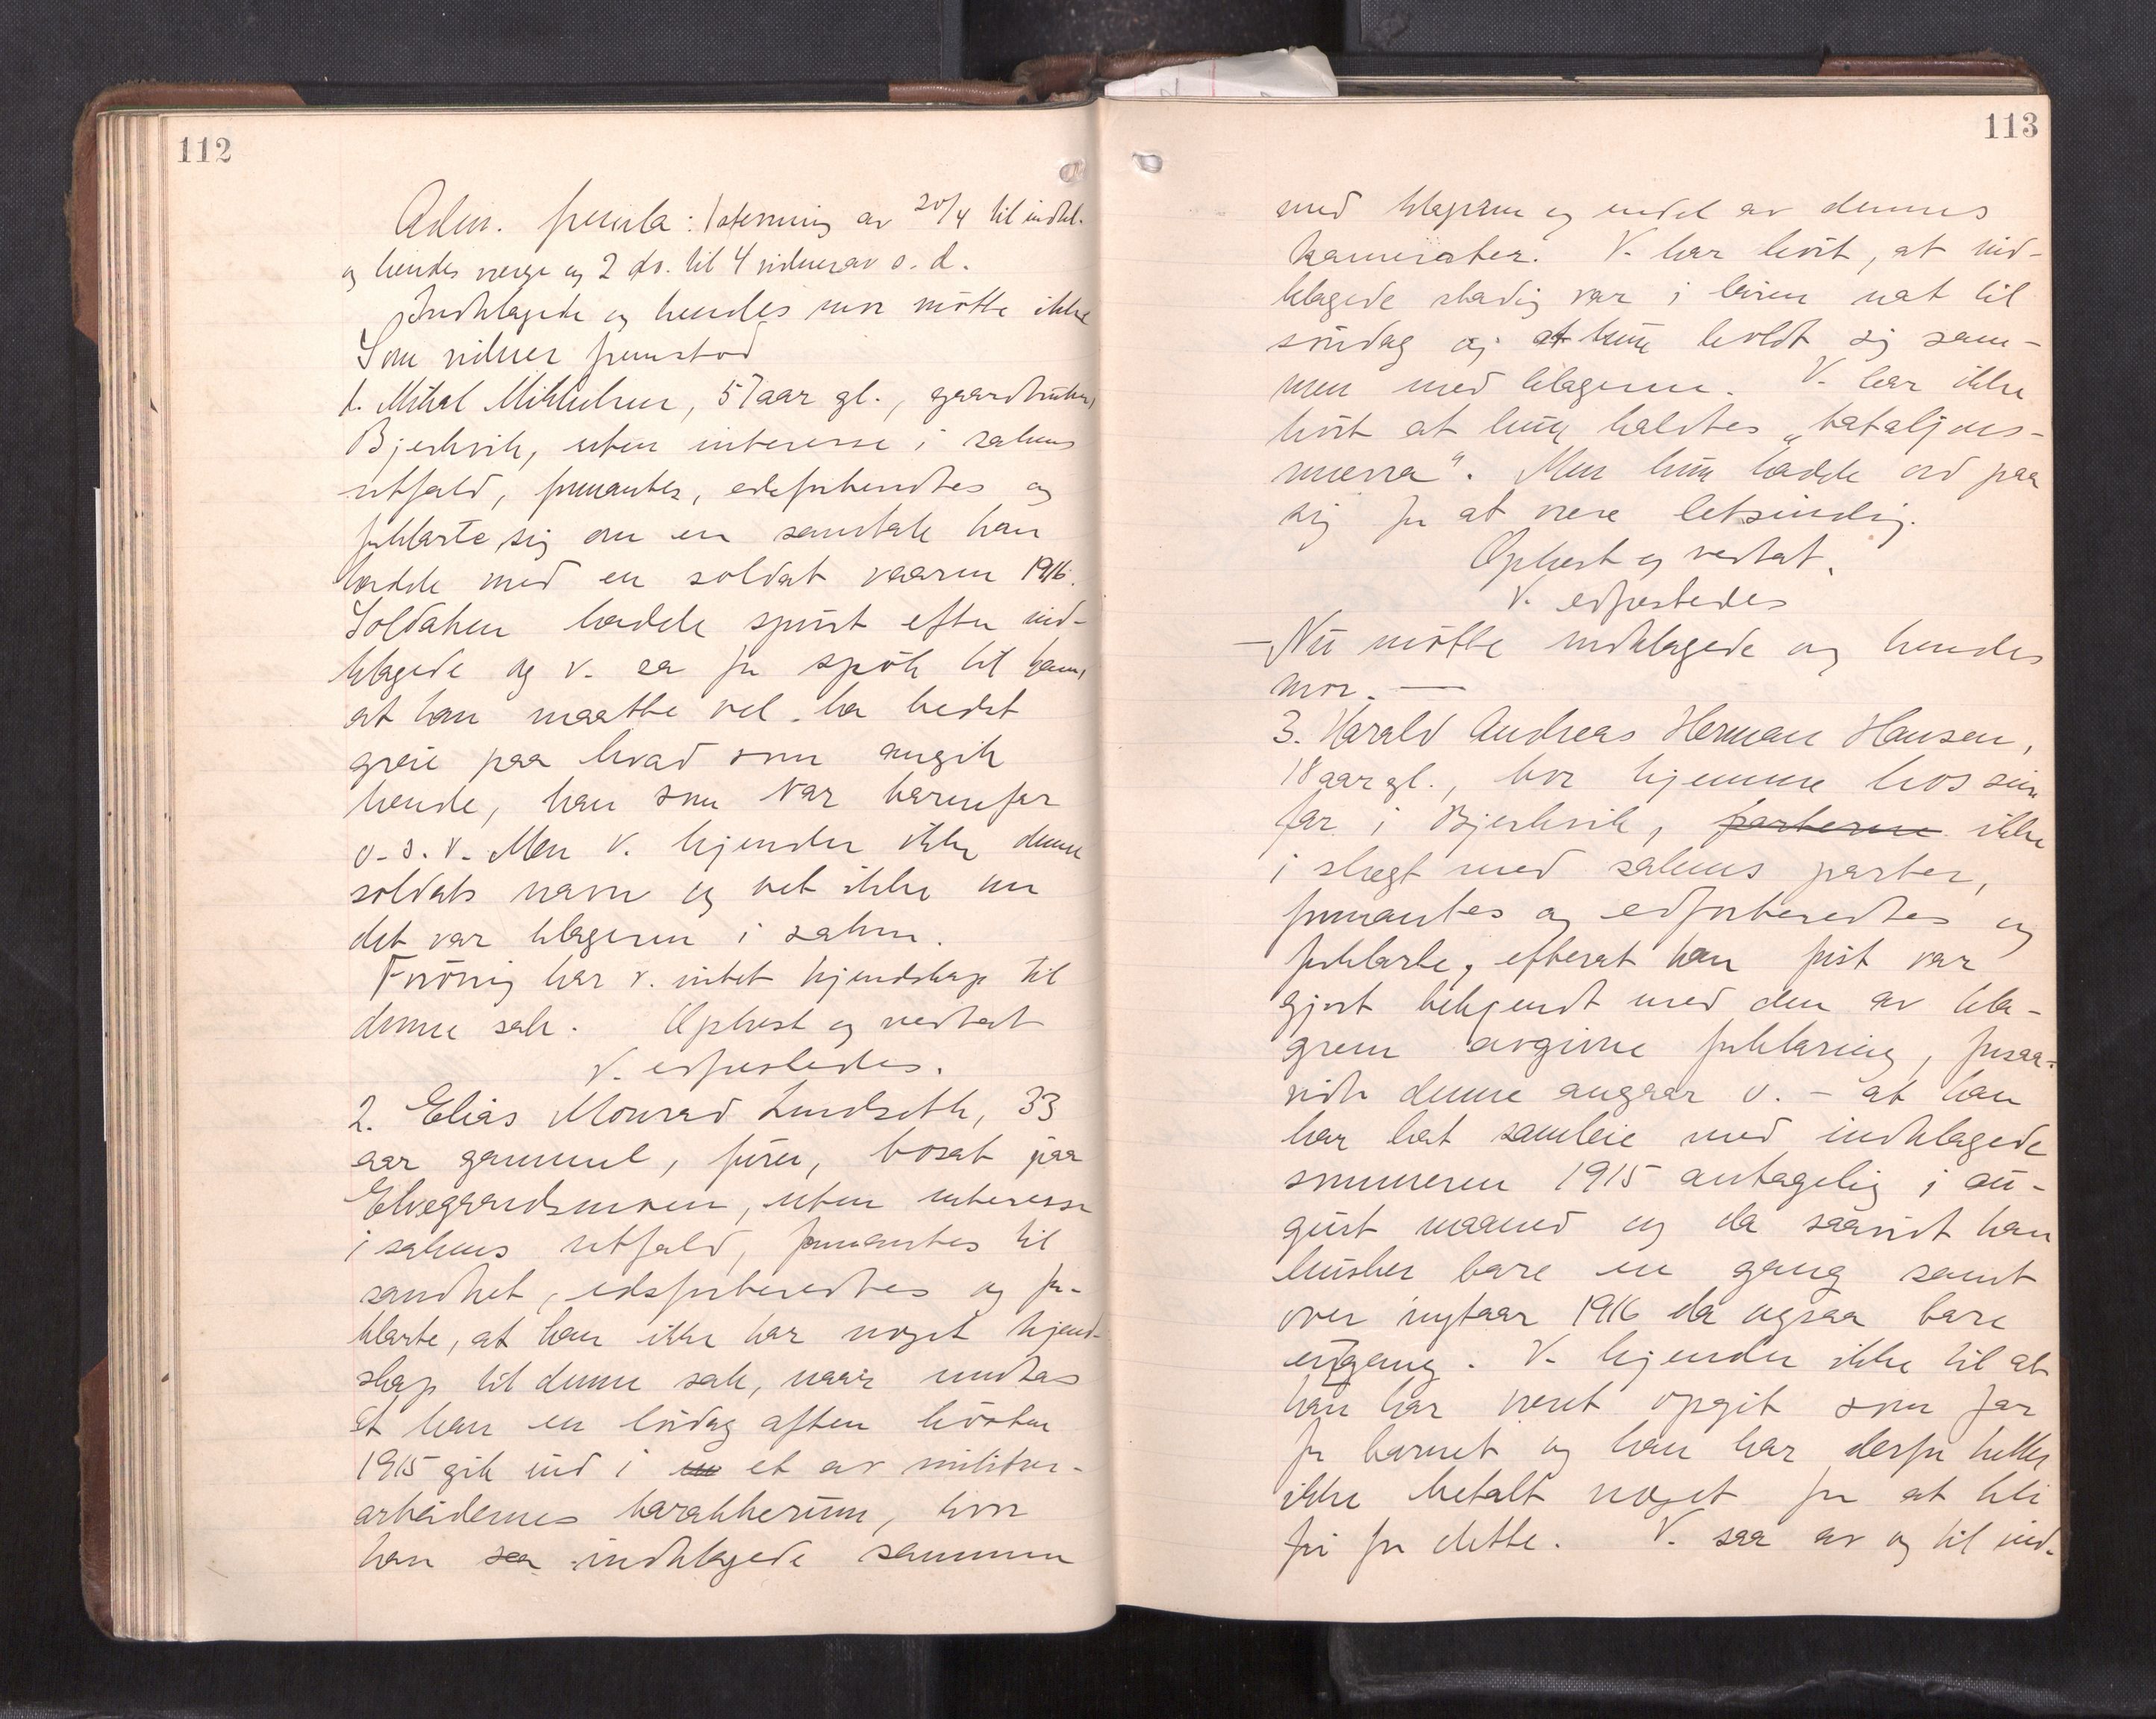 112
Adm. fremla: 1 stevning av 20/4 til indkl.
og hendes verge og 2 do. til 4 vidner av s. d.
Indklagede og hendes mor mötte ikke
Som vidner fremstod
1. Mikal Mikkelsen, 57 aar gl., gaardbruker,
Bjerkvik, uten interesse i sakens
utfald, formantes, edsforberedtes og
forklarte sig om en samtale han
hadde med en soldat vaaren 1916.
Soldaten hadde spurt efter ind-
klagede og v. sa for spök til ham,
at han maatte vel ha bedst
greie paa hvad som angik
hende, han som var barnefar
o. s. v. Men v. kjender ikke denne
soldats navn og vet ikke om
det var klageren i saken.
Forövrig har v. intet kjendskap til
denne sak. Oplæst og vedtat
V. edfæstedes.
2. Elias Monrad Lundseth, 33
aar gammel, furer, bosat paa
Elvegaardsmoen, uten interesse
i sakens utfald, formantes til
sandhet, edsforberedtes og for-
klarte, at han ikke har noget kjend-
skap til denne sak, naar undtas
at han en lördag aften hösten
1915 gik ind i en et av militær-
arbeidernes barakkerum, hvor
han saa indklagede sammen
113
med klageren og endel av dennes
kamerater. V. har hört, at ind-
klagede stadig var i leiren nat til
söndag og at hun holdt sig sam-
men med klageren. V. har ikke
hört at hun kaldtes "bataljons-
merra". Men hun hadde ord paa
sig for at være letsindig.
Oplæst og vedtat.
V. edfæstedes
- Nu mötte indklagede og hendes
mor. -
3. Harald Andreas Herman Hansen,
18 aar gl., bor hjemme hos sin
far i Bjerkvik, parterne ikke
i slegt med sakens parter,
formantes og edforberedtes og
forklarte, efterat han först var
gjort bekjendt med den av kla-
geren avgivne forklaring, forsaa-
vidt denne angaar v. - at han
har hat samleie med indklagede
sommeren 1915 antagelig i au-
gust maaned og da saavidt han
husker bare en gang samt
over nytaar 1916 da ogsaa bare
engang. V. kjender ikke til at
han har været opgit som far
for barnet og han har derfor heller
ikke betalt noget for at bli
fri for dette. V. saa av og til ind-